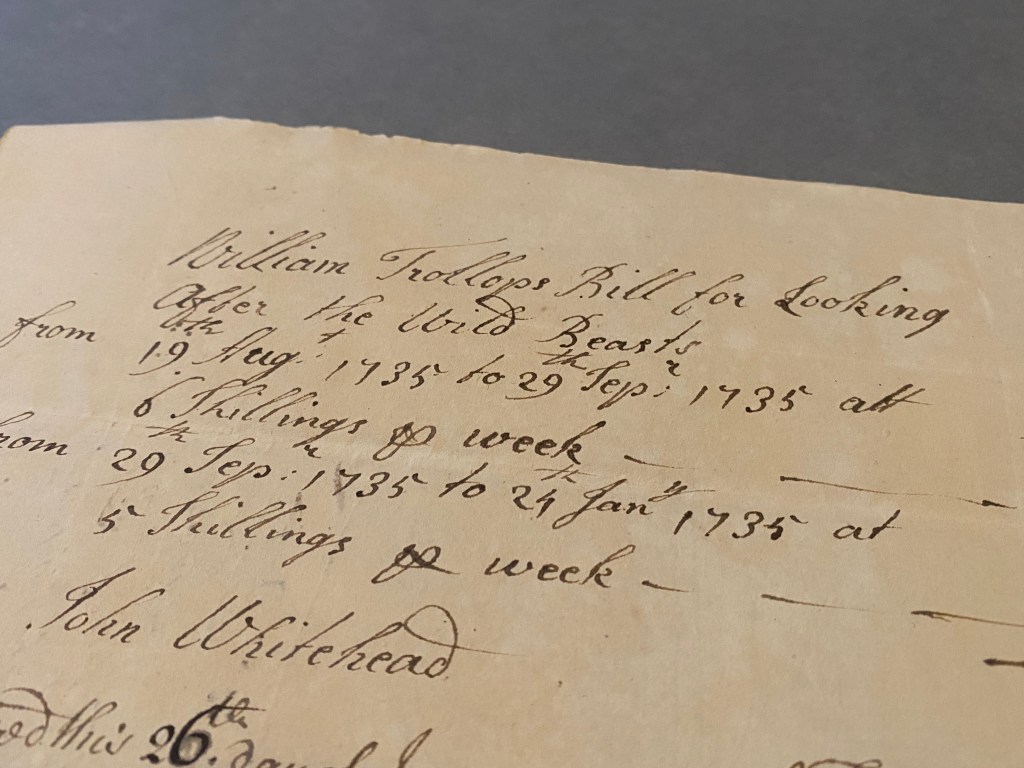 William Trollops Bill for Looking
After the Wild Beasts
from 19th Aug:t 1735 to 29th Sep:r 1735 att
6 Shillings ⅌ week
from 29th Sep:r 1735 to 24th Jany 1735 at
5 Shillings ⅌ week
John Whitehead
this 26th day